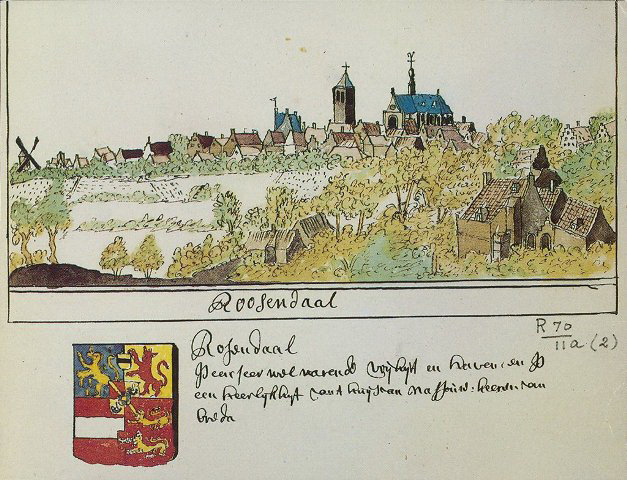 Roosendaal
R 70
11a (2)
Rosendaal
een seer wel varende vrijheyt en haven en
een heerlijkheyt van't huijs van Nassouw heeren van
breda